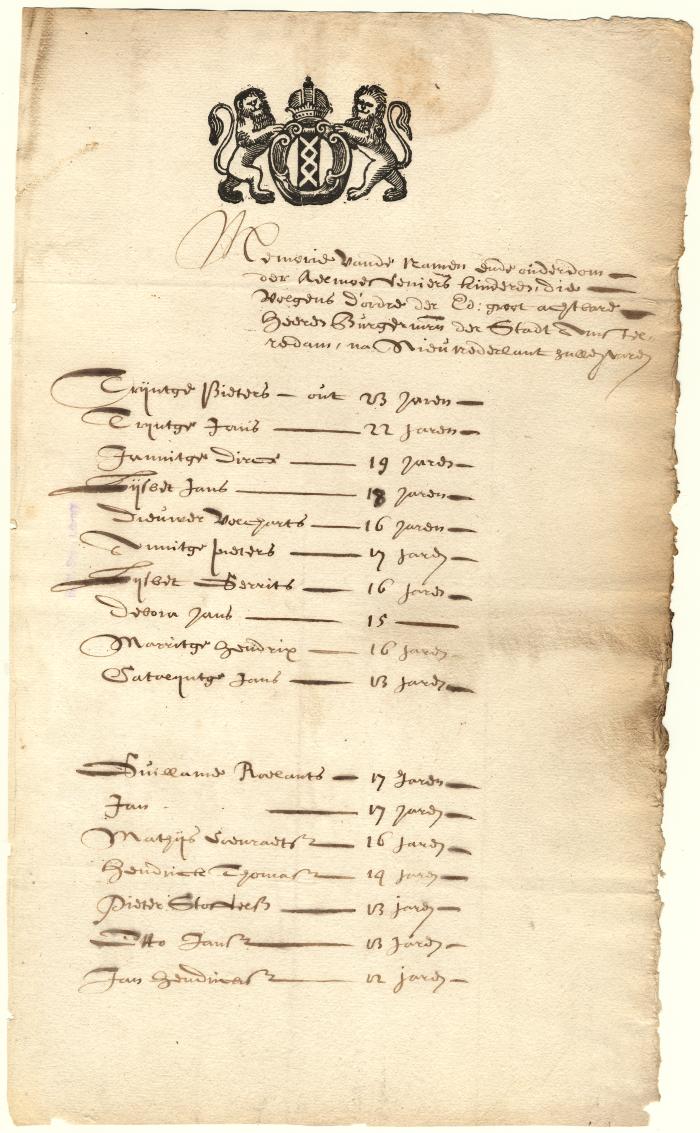 Memorie vande namen ende ouderdom
der Aelmoesseniers kinderen, die
volgens d'ordre der Ed: groot achtbare
Heeren Burgermrn der Stadt Amstel-
redam, na Nieu nederlant zulle varen
Trijntge Pieters - out 23 jaren
Trijntge Jans 22 jaren
Jannitge Dircx 19 jaren
Lijsbet Jans 18 jaren
Dieuwer Volcharts 16 jaren
Annitge pieters 17 jaren
Lijsbet Gerrits 16 jaren
Debora Jans 15
Marritge Hendrix 16 jaren
Catalijntge Jans 13 jaren
Guillame Roelants 17 jaren
Jan 17 jaren
Mathijs Coenraetsz 16 jaren
Hendrick Thomasz 14 jaren
Pieter 13 jaren
Otto Jansz 13 jaren
Jan Hendricksz 12 jaren